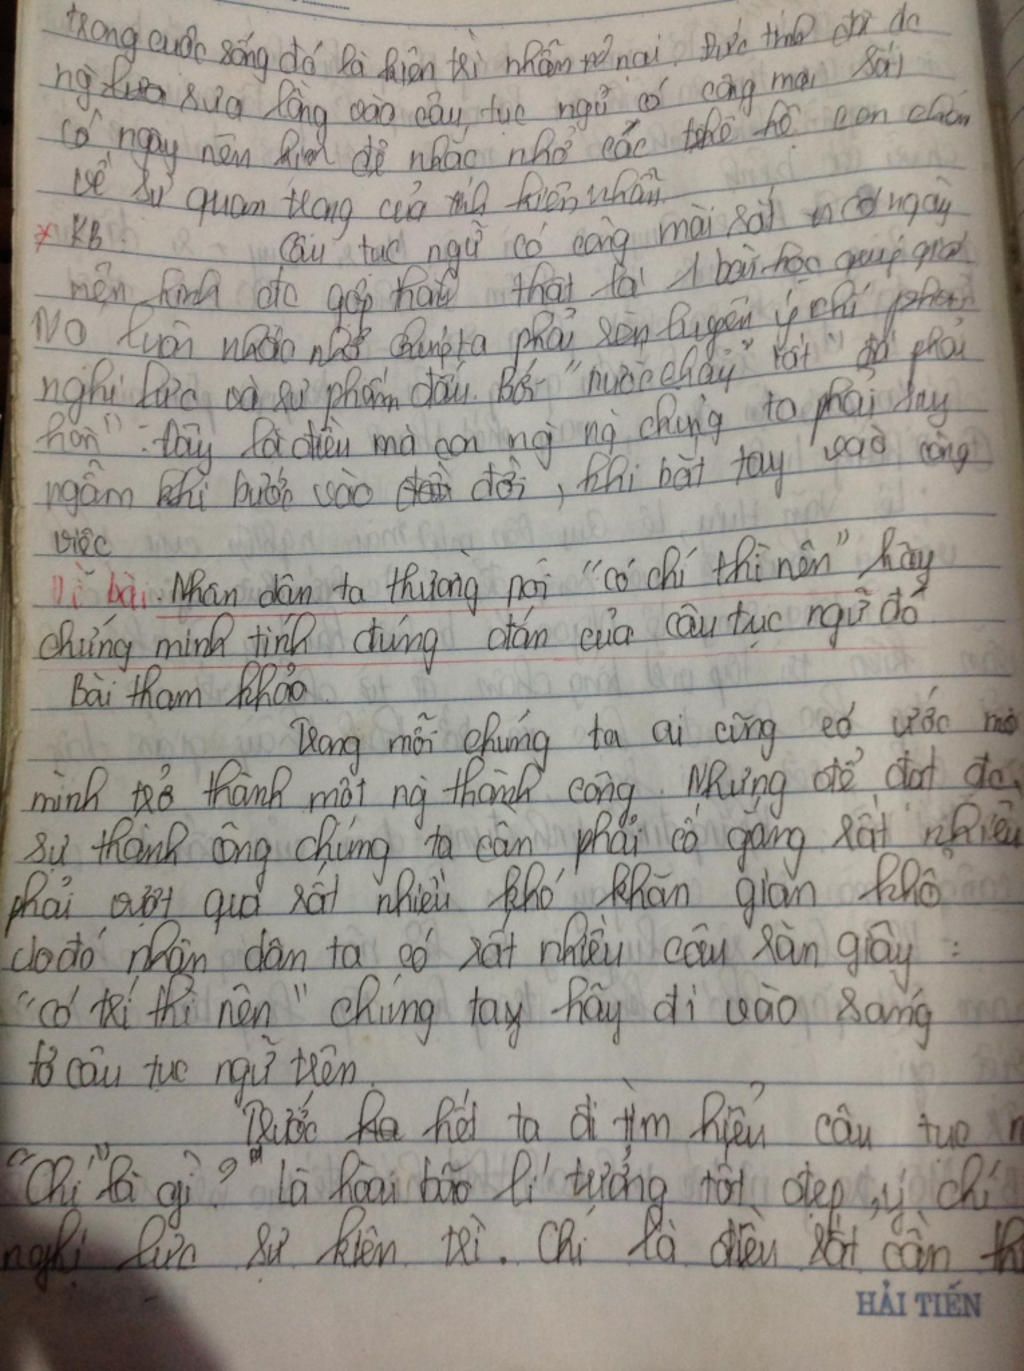 trong cuộc sống đó là kiên trì nhẫn nại. Đức tính đó đc
ng xưa lồng vào câu tục ngữ có công mài sắt
có ngày nên kim để nhắc nhở các thế hệ con cháu
về sự quan trong của tính kiên nhẫn
* KB. Câu tục ngữ có công mài sắt có ngày
nên kim thật là 1 bài học quý giá
Nó luôn nhắc nhở chúng ta phải rèn luyện ý chí
nghị lực và sự phấn đấu. Bởi "nước chảy" phải
đây là điều mà con ng chúng ta phải suy
ngẫm khi bước vào đời, khi bắt tay vào công
việc
Đề bài. Nhân dân ta thường nói "có chí thì nên" hãy
chứng minh tính đúng đắn của câu tục ngữ đó
Bài tham khảo
Trong mỗi chúng ta ai cũng có ước mơ
mình trở thành một ng thành công. Nhưng để đạt đc
sự thành công chúng ta cần phải cố gắng rất nhiều
phải vượt qua rất nhiều khó khăn gian khổ
do đó nhân dân ta có rất nhiều câu răn giậy :
"có trí thì nên" chúng tay hãy đi vào sáng
tỏ câu tục ngữ trên.
Trước hết ta đi tìm hiểu câu tục n
"Chí" là gì? là hoài bão lí tưởng tốt đẹp, ý chí
nghị lực sự kiên trì. Chí là điều rất cần th
HẢI TIẾN